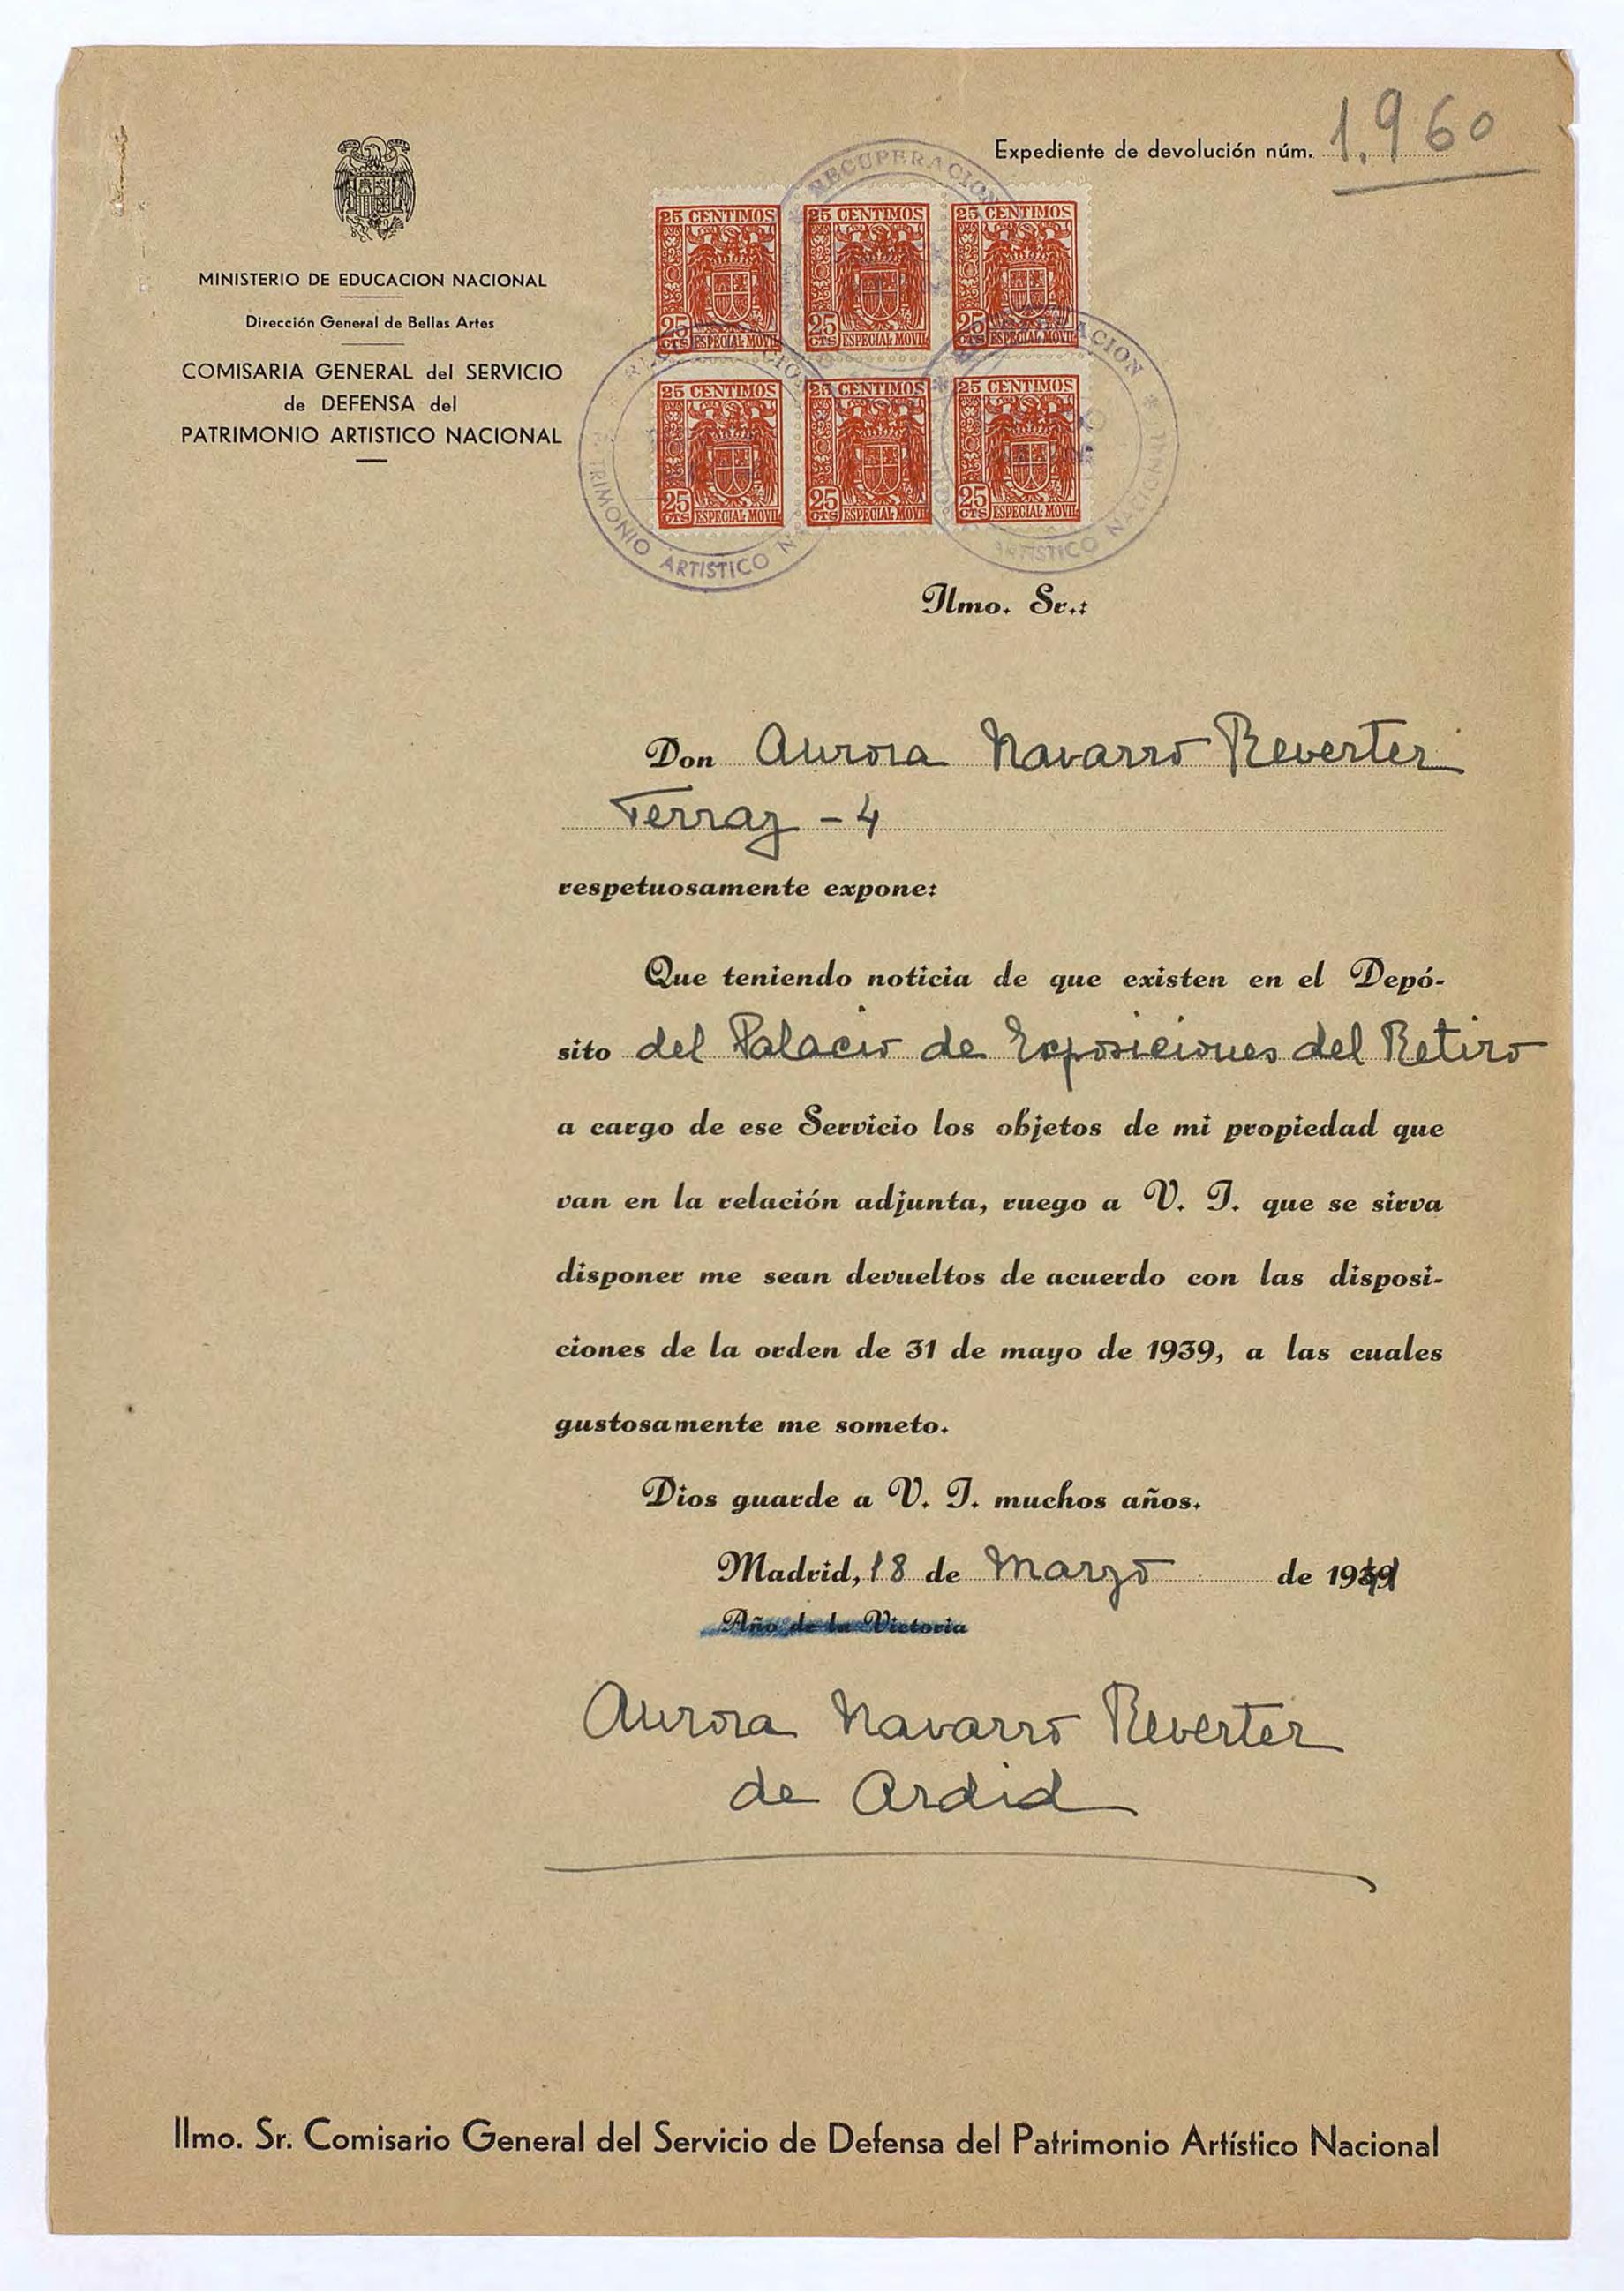 Expediente de devolución núm. 1.960
MINISTERIO DE EDUCACION NACIONAL
Dirección General de Bellas Artes
COMISARIA GENERAL del SERVICIO
de DEFENSA del
PATRIMONIO ARTISTICO NACIONAL
RECUPERACION
25 CENTIMOS 25 CENTIMOS 25 CENTIMOS
25 CTS ESPECIAL MOVIL 25 CTS ESPECIAL MOVIL 25 CTS ESPECIAL MOVIL
25 CENTIMOS 25 CENTIMOS 25 CENTIMOS
25 CTS ESPECIAL MOVIL 25 CTS ESPECIAL MOVIL 25 CTS ESPECIAL MOVIL
TRIMONIO ARTISTICO N
ARTISTICO NACIONAL
Ilmo. Sr.:
Don Aurora Navarro Reverter
Ferraz - 4
respetuosamente expone:
Que teniendo noticia de que existen en el Depó-
sito del Palacio de Exposiciones del Retiro
a cargo de ese Servicio los objetos de mi propiedad que
van en la relación adjunta, ruego a V. I. que se sirva
disponer me sean devueltos de acuerdo con las disposi-
ciones de la orden de 31 de mayo de 1939, a las cuales
gustosamente me someto.
Dios guarde a V. I. muchos años.
Madrid, 18 de Marzo de 1941
Año de la Victoria
Aurora Navarro Reverter
de Ardid
Ilmo. Sr. Comisario General del Servicio de Defensa del Patrimonio Artístico Nacional